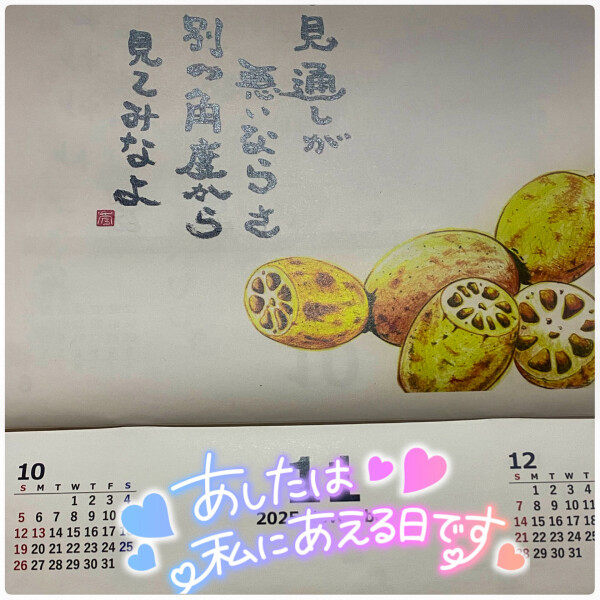 見通しが
悪いならさ
別の角度から
見てみなよ
10
S M T W T F S
1 2 3 4
5 6 7 8 9 10
12 13 14 15 16 17
19 20 21 22 23 24 25
26 27 28 29 30 31
11
2025
あしたは
私にあえる日です
12
S M T W T
1 2 3 4
7 8 9 10 11
14 15 16 17 18
21 22 23 24 25
29 30 31